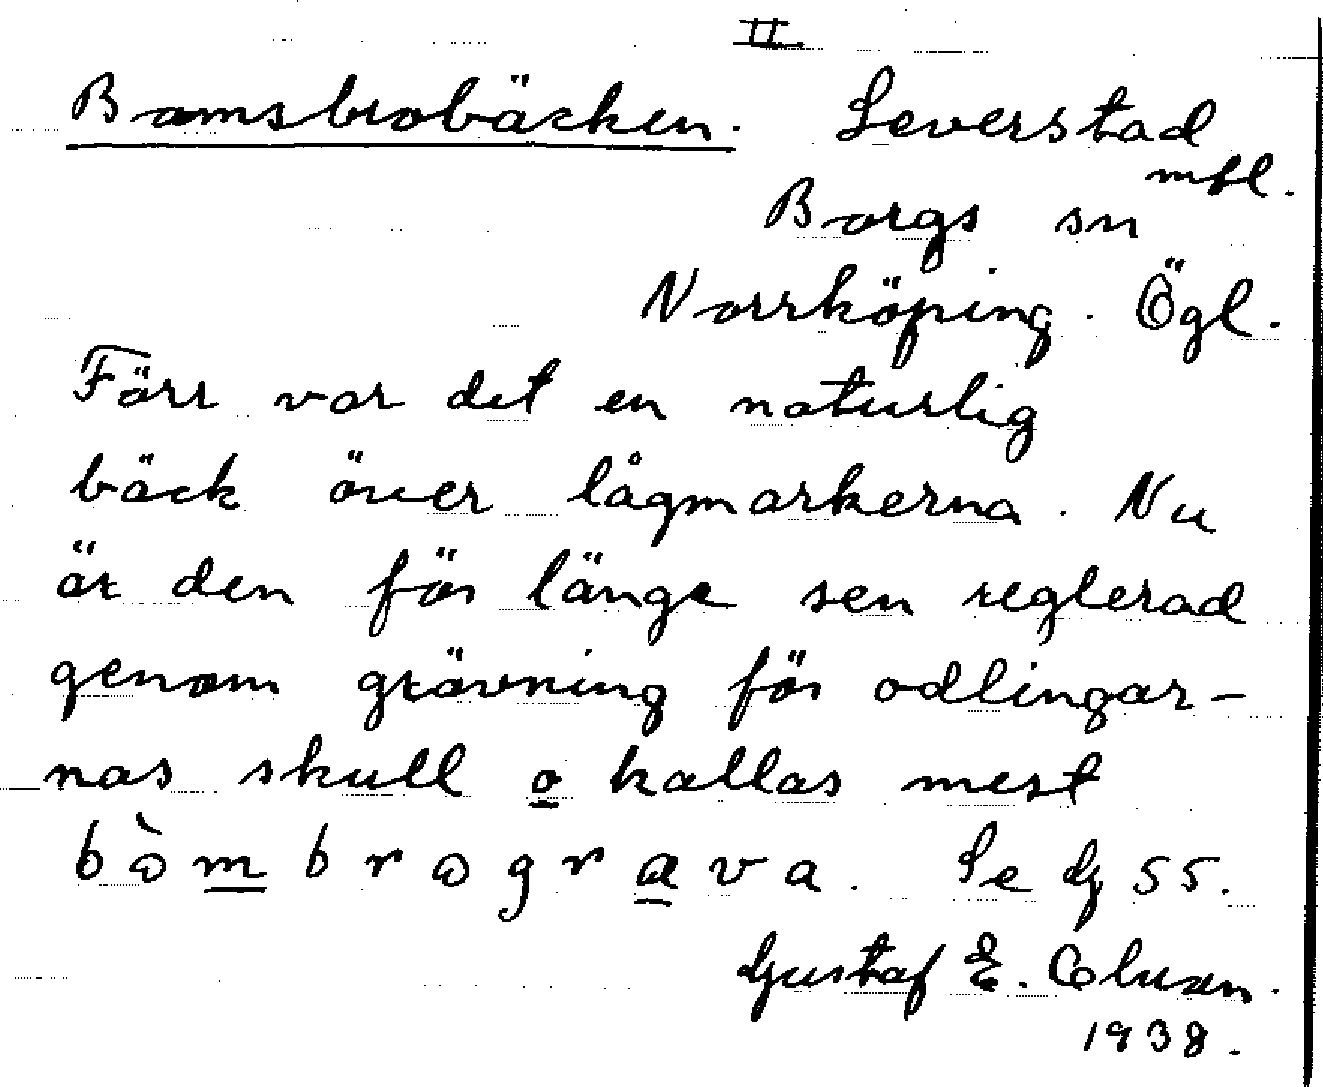 II
Bomsbrobäcken. Leverstad
mfl.
Borgs sn
Norrköping. Ögl.
Förr var det en naturlig
bäck över lågmarkerna. Nu
är den för länge sen reglerad
genom grävning för odlingar-
nas skull o kallas mest
bòmbrograva. Se G 55.
Gustaf E.
1938.